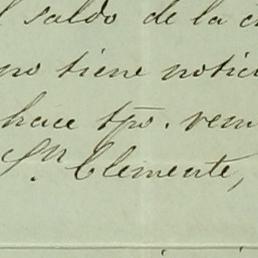 l saldo de la c
no tiene notici
hace tpo. rem
Sn. Clemente,